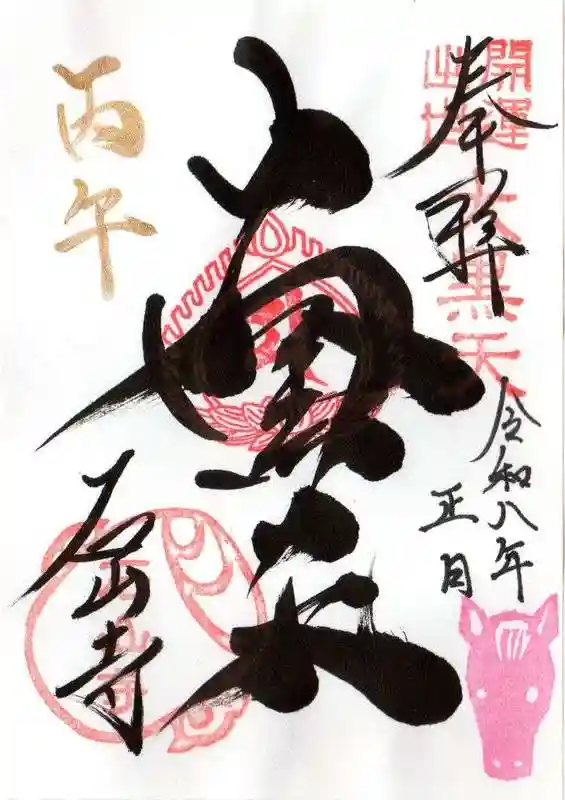 開運
出世
大黒天
奉拝
令和八年
正月
大黒天
丙午
石山寺